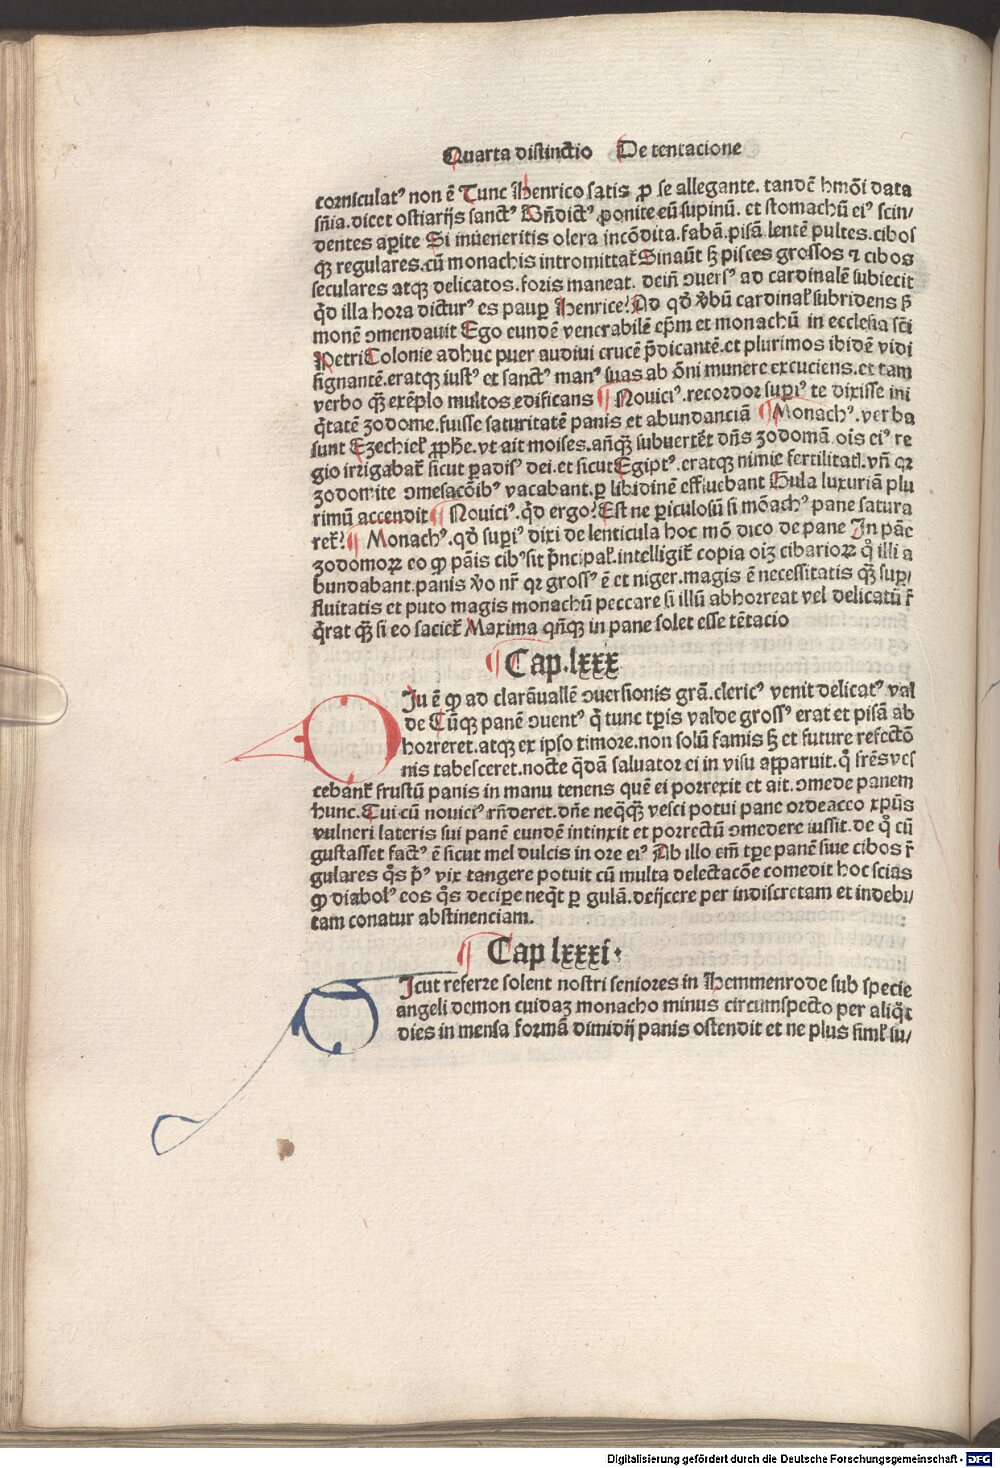 Quarta distinctio De tentacione
corniculatꝰ non ē Tunc Henrico satis ꝓ se allegante. tandē hmōi data
sñia. dicet ostiarijs sanctꝰ Bñdictꝰ ꝓonite eū supinū. et stomachū eiꝰ scin⸗
dentes aꝑite Si inueneritis olera incōdita. fabā. pisā lentē pultes. cibos
qꝫ regulares. cū monachis intromittat̄ Sinaūt sꝫ pisces grossos ⁊ cibos
seculares atqꝫ delicatos. foris maneat. deiñ ꝯuersꝰ ad cardinalē subiecit
qͥd illa hora dicturꝰ es pauꝑ Henrice? Ad qd̄ v̄bū cardinal̄ subridens ẜ
monē ꝯmendauit Ego eundē venerabilē ep̄m et monachū in ecclesia sc̄i
Petri Colonie adhuc puer audiui crucē p̄dicantē. et plurimos ibidē vidi
signantē. eratqꝫ iustꝰ et sanctꝰ manꝰ suas ab ōni munere excuciens. et tam
verbo qꝫ exēplo multos edificans ¶ Nouiciꝰ. recordor suꝑiꝰ te dixisse ini
qͥtatē zodome. fuisse saturitatē panis et abundanciā ¶ Monachꝰ. verba
sunt Ezechiel̄ ꝓphe. vt ait moises. añqꝫ subuert̄et dñs zodomā. oīs eiꝰ re
gio irrigabat̄ sicut ꝑadisꝰ dei. et sicut Egiptꝰ. eratqꝫ nimie fertilitatꝭ. vñ qꝛ
zodomite ꝯmesacōibꝰ vacabant. ꝑ libidinē effluebant Gula luxuriā plu
rimū accendit ¶ Nouiciꝰ. qͥd ergo? Est ne ꝑiculosū si mōachꝰ pane satura
ret̄? ¶ Monachꝰ. qd̄ suꝑiꝰ dixi de lenticula hoc mō dico de pane In pāe
zodomoꝝ eo ꝙ pāis cibꝰ sit p̄ncipal̄. intelligit̄ copia oīꝫ cibarioꝝ qͥ illi a
bundabant. panis v̄o nr̄ qꝛ grossꝰ ē et niger. magis ē necessitatis qꝫ suꝑ⸗
fluitatis et puto magis monachū peccare si illū abhorreat vel delicatū r̄
qͥrat qꝫ si eo saciet̄ Maxima qñqꝫ in pane solet esse tētacio
¶ Cap. lxxx
Iu ē ꝙ ad clarāuallē ꝯuersionis grā. clericꝰ venit delicatꝰ val
de Cūqꝫ panē ꝯuentꝰ qͥ tunc tꝑis valde grossꝰ erat et pisā ab
horreret. atqꝫ ex ipso timore. non solū famis sꝫ et future refectō
nis tabesceret. nocte qͣdā saluator ei in visu apparuit. qͥ fr̄es ves
cebant̄ frustū panis in manu tenens quē ei porrexit et ait. ꝯmede panem
hunc. Cui cū nouiciꝰ rñderet. dñe neqͣqꝫ vesci potui pane ordeaceo xp̄us
vulneri lateris sui panē eundē intinxit et porrectū ꝯmedere iussit. de qͦ cū
gustasset factꝰ ē sicut mel dulcis in ore eiꝰ Ab illo em̄ tꝑe panē siue cibos r̄
gulares qͦs p̄ꝰ vix tangere potuit cū multa delectacōe comedit hoc scias
ꝙ diabolꝰ eos qͦs deciꝑe neqͥt ꝑ gulā. deijcere per indiscretam et indebi⸗
tam conatur abstinenciam.
¶ Cap lxxxi.
Icut referre solent nostri seniores in Hemmenrode sub specie
angeli demon cuidaꝫ monacho minus circumspecto per aliqͦt
dies in mensa formā dimidij panis ostendit et ne plus siml̄ su⸗
Digitalisierung gefördert durch die Deutsche Forschungsgemeinschaft - DFG